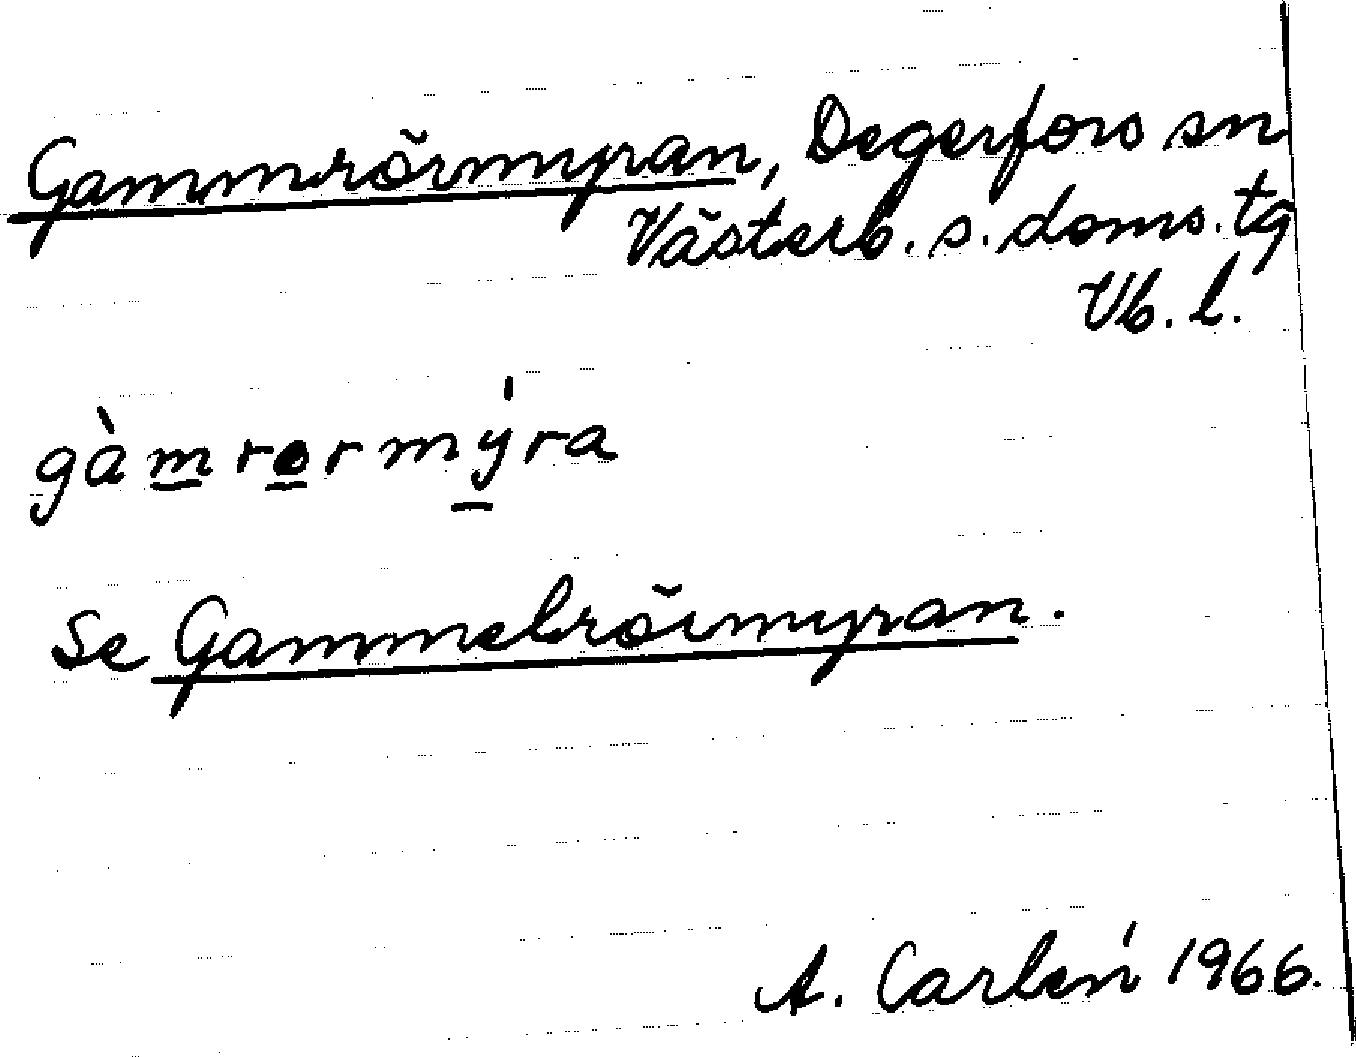 Gammrörmyran, Degerfors sn
Västerb. s. doms. tg
Vb. l.
gàmrormýra
Se Gammelrörmyran.
A. Carlén 1966.